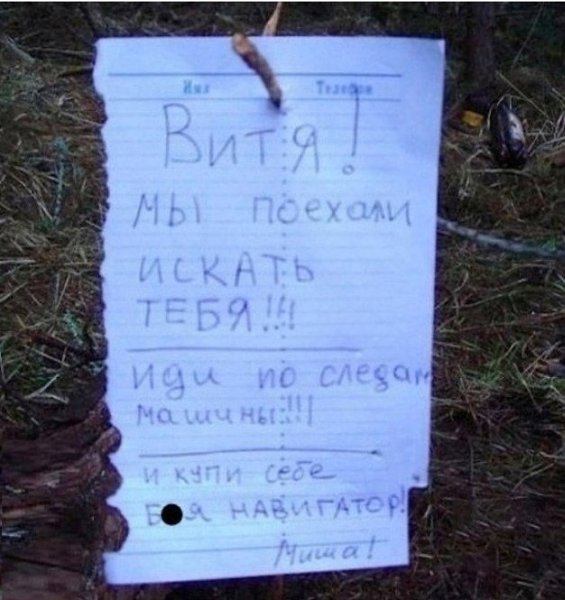 Имя Телефон
Витя!
Мы поехали
искать
тебя!!!
иди по следам
машины!!!
и купи себе
Б●я навигатор!
Миша!